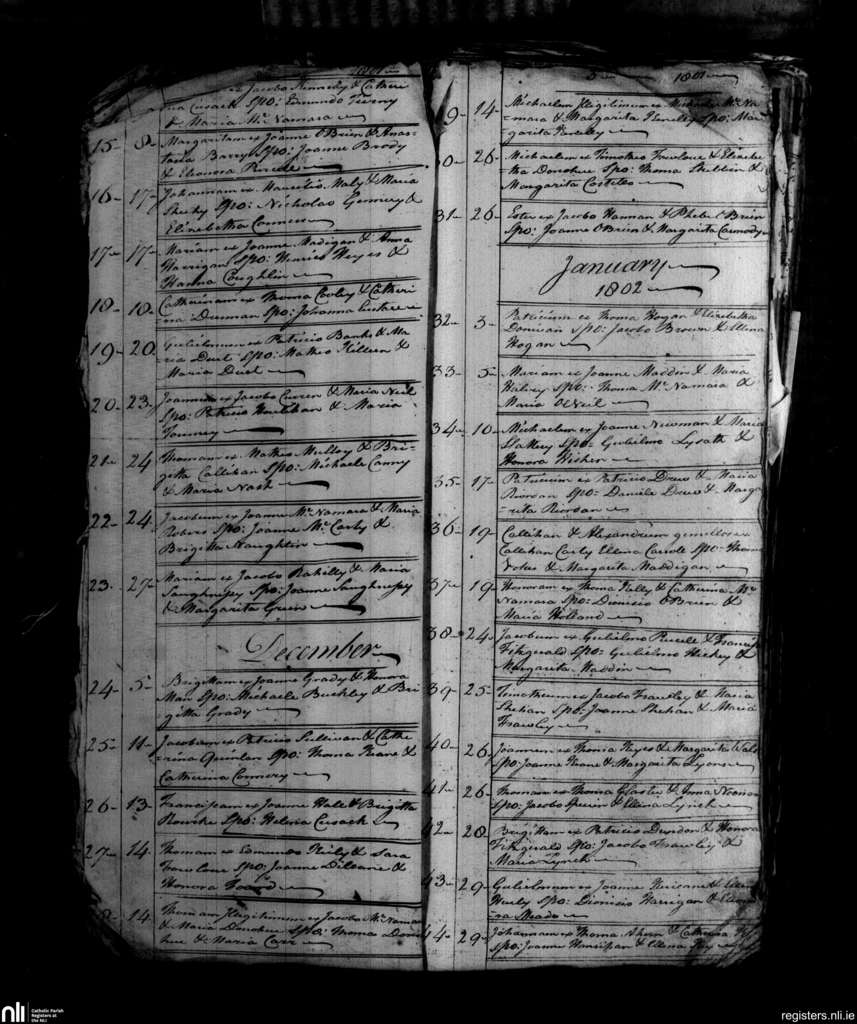 1801
ex Jacobo Kennedy & Catheri
na Cusack Spo: Edmundo
& Maria McNamara
15- 8- Margaritam ex Joanne OBrien & Anas
tacia Barry Spo: Joanne Brody
& Eleanora Purcele
16- 17- Johannam ex Marcilio Haly & Maria
Sheehy Spo: Nicholao &
Elizabetha Conners
17- 17- Mariam ex Joanne Madigan & Anna
Harrigan Spo: Henrico Heyes &
Hanna Coughlin
18- 18- Catharinam ex Thoma Cooley & Catheri
na Spo: Johanna
19- 20 Gulielmum ex Patricio Banks & Ma
ria Duel Spo: Matheo Killeen &
Maria Duel
20- 23- Joannem ex Jacobo Curren & Maria Neil
Spo: Patricio & Maria
21- 24 Thomam ex Matheo Mulloy & Bri-
gitta Callihan Spo: Michaele Canny
& Maria Nash
22- 24- Jacobum ex Joanne McNamara & Maria
Spo: Joanne McCarty &
Brigitta Naughtin
23- 27- Mariam ex Jacobo Rahilly & Maria
Spo: Joanne
& Margarita Green
December
24- 5- Brigittam ex Joanne Grady & Honora
Spo: Michaele Buckley & Bri
gitta Grady
25- 11- Jacobum ex Patricio Sullivan & Cathe
rina Quinlan Spo: Thoma Keane &
Catherina Connery
26- 13- ex Joanne Hale & Brigitta
Rourke Spo: Helena Cusack
27- 14- Thomam ex Edmundo & Sara
Spo: Joanne &
Honora
8- 14- Thomam Illegitimum ex Jacobo McNamara
& Maria Donohue Spo: Thoma Dono
hue & Maria Carr
1801
9- 14- Michaelem Illegitimum ex Michaele McNa
mara & Margarita Spo: Mar
garita
30- 26- Michaelem ex Timotheo & Elizabe
tha Donohue Spo: Thoma &
Margarita Costeloo
31- 26- Ester ex Jacobo Hannan & Phebe OBrien
Spo: Joanne OBrien & Margarita Carmody
January
1802
32- 3- Patricium ex Thoma Hogan & Elizabetha
Donivan Spo: Jacobo Brown & Ellena
Hogan
33- 5- Mariam ex Joanne Madden & Maria
Spo: Thoma McNamara &
Maria ONeil
34- 10- Michaelem ex Joanne Newman & Maria
Slattery Spo: Gulielmo Lysath &
Honora
35- 17- Patricium ex Patricio Drew & Maria
Riordan Spo: Daniele Drew & Marga
rita Riordan
36- 19- Callihan & Alexandrum gemellos ex
Callihan Carty Ellena Carrole Spo: Thoma
& Margarita Maddigan
37- 19- Honoram ex Thoma Kelly & Catherina Mc
Namara Spo: Dionisio OBrien &
Maria Holland
38- 24- Jacobum ex Gulielmo Purcele & Francis
Fitzgerald Spo: Gulielmo Hickey &
Margarita Maddin
39- 25- Timotheum ex Jacobo Frawley & Maria
Shehan Spo: Joanne Shehan & Maria
Frawley
40- 26 Joannem ex Thoma Heyes & Margarita
Spo: Joanne Keane & Margarita Lyons
41- 26- Thomam ex Thoma & Anna Noonan
Spo: Jacobo & Ellena Lynch
42- 28 Brigittam ex Patricio Dundon & Honora
Fitzgerald Spo: Jacobo Frawley &
Maria Lynch
43- 29- Gulielmum ex Joanne &
Hurly Spo: Dionisio Harrigan &
Meade
44- 29- Johannam ex Thoma Ahern & Catherina
Spo: Joanne & Ellena
nli
Catholic Parish
Registers at
the NLI
registers.nli.ie